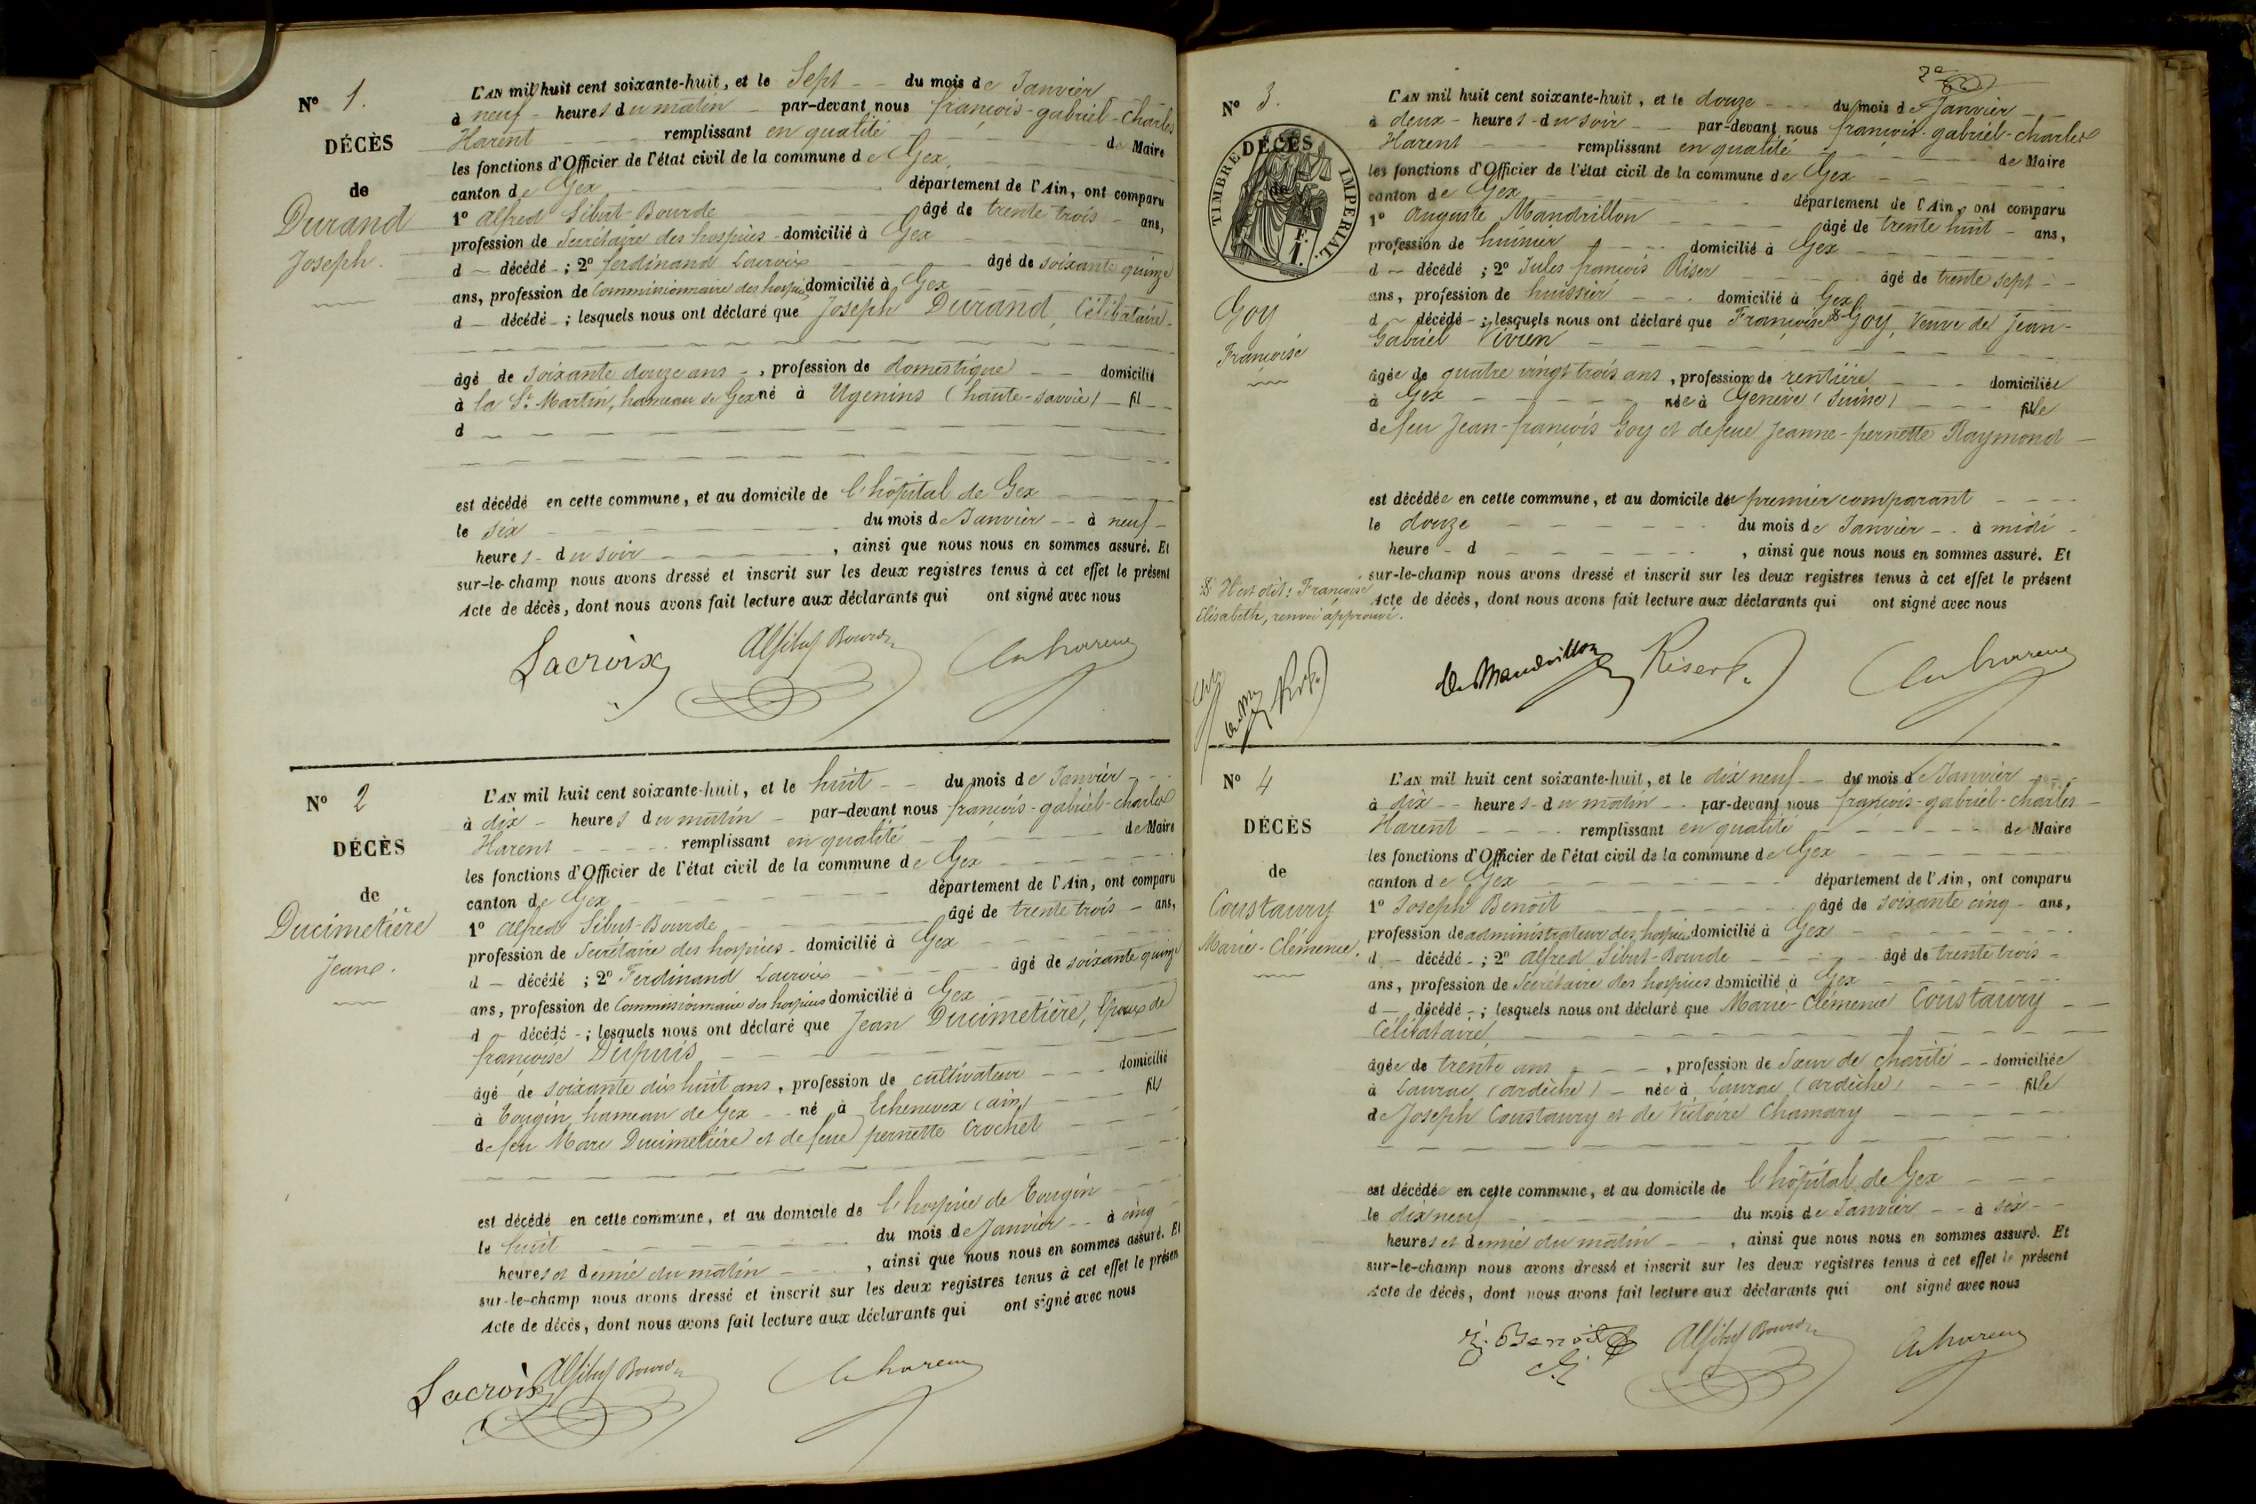 N° 1.
DÉCÈS
de
Durand
Joseph.
L'AN mil huit cent soixante-huit, et le Sept du mois de Janvier
à neuf heures du matin par-devant nous françois-gabriel-charles
Harent remplissant en qualité de Maire
les fonctions d'Officier de l'état civil de la commune de Gex
canton de Gex département de l'Ain, ont comparu
1° alfred Sibut-Bourde âgé de trente trois ans,
profession de Secrétaire des hospices domicilié à Gex
d décédé ; 2° ferdinand Lacroix âgé de soixante quinze
ans, profession de Commissionnaire des hospices domicilié à Gex
d décédé ; lesquels nous ont déclaré que Joseph Durand, Célibataire
âgé de soixante douze ans, profession de domestique domicilié
à la St. Martin, hameau de Gex né à Ugenins (haute-savoie) fil
d
est décédé en cette commune, et au domicile de l'hôpital de Gex
le six du mois de Janvier à neuf
heures du soir, ainsi que nous nous en sommes assuré. Et
sur-le-champ nous avons dressé et inscrit sur les deux registres tenus à cet effet le présent
Acte de décès, dont nous avons fait lecture aux déclarants qui ont signé avec nous
Lacroix Alf Sibut Bourde Ch harent
N° 2
DÉCÈS
de
Ducimetière
Jean.
L'AN mil huit cent soixante-huit, et le huit du mois de Janvier
à dix heures du matin par-devant nous françois-gabriel-charles
Harent remplissant en qualité de Maire
les fonctions d'Officier de l'état civil de la commune de Gex
canton de Gex département de l'Ain, ont comparu
1° alfred Sibut-Bourde âgé de trente trois ans,
profession de Secrétaire des hospices domicilié à Gex
d décédé ; 2° Ferdinand Lacroix âgé de soixante quinze
ans, profession de Commissionnaire des hospices domicilié à Gex
d décédé ; lesquels nous ont déclaré que Jean Ducimetière, Epoux de
françoise Dupuis
âgé de soixante dix huit ans, profession de cultivateur domicilié
à Tougin, hameau de Gex né à Echenevex (ain) fils
de feu Marc Ducimetière et de feue pernette Crochet
est décédé en cette commune, et au domicile de l'hospice de Tougin
le huit du mois de Janvier à cinq
heures et demie du matin, ainsi que nous nous en sommes assuré. Et
sur-le-champ nous avons dressé et inscrit sur les deux registres tenus à cet effet le présen
Acte de décès, dont nous avons fait lecture aux déclarants qui ont signé avec nous
Lacroix Alf Sibut Bourde Ch harent
2e
N° 3.
DÉCÈS
de
TIMBRE IMPERIAL.
F.
1.
Goy
Françoise
L'AN mil huit cent soixante-huit, et le douze du mois de Janvier
à deux heures du soir par-devant nous françois-gabriel-charles
Harent remplissant en qualité de Maire
les fonctions d'Officier de l'état civil de la commune de Gex
canton de Gex département de l'Ain, ont comparu
1° Auguste Mandrillon âgé de trente huit ans,
profession de huissier domicilié à Gex
d décédé ; 2° Jules françois Riser âgé de trente sept
ans, profession de huissier domicilié à Gex
d décédé ; lesquels nous ont déclaré que Françoise Goy, Veuve de Jean-
Gabriel Vivien
âgée de quatre vingt trois ans, profession de rentière domiciliée
à Gex née à Genève (Suisse) fille
de feu Jean-françois Goy et de feue Jeanne-pernette Raymond
est décédée en cette commune, et au domicile du premier comparant
le douze du mois de Janvier à midi
heure d, ainsi que nous nous en sommes assuré. Et
sur-le-champ nous avons dressé et inscrit sur les deux registres tenus à cet effet le présent
Acte de décès, dont nous avons fait lecture aux déclarants qui ont signé avec nous
Elisabeth, renvoi approuvé.
Mandrillon Riser Ch harent
N° 4
DÉCÈS
de
Coustaury
Marie-Clémence.
L'AN mil huit cent soixante-huit, et le dix neuf du mois de Janvier
à dix heures du matin par-devant nous françois-gabriel-charles
Harent remplissant en qualité de Maire
les fonctions d'Officier de l'état civil de la commune de Gex
canton de Gex département de l'Ain, ont comparu
1° Joseph Benoit âgé de soixante cinq ans,
profession de administrateur des hospices domicilié à Gex
d décédé ; 2° alfred Sibut-Bourde âgé de trente trois
ans, profession de Secrétaire des hospices domicilié à Gex
d décédé ; lesquels nous ont déclaré que Marie-Clémence Coustaury
Célibataire,
âgée de trente ans, profession de Sœur de charité domiciliée
à Laurac (ardèche) née à Laurac (ardèche) fille
de Joseph Coustaury et de Victoire Chamary
est décédée en cette commune, et au domicile de l'hôpital de Gex
le dix neuf du mois de Janvier à six
heures et demie du matin, ainsi que nous nous en sommes assuré. Et
sur-le-champ nous avons dressé et inscrit sur les deux registres tenus à cet effet le présent
Acte de décès, dont nous avons fait lecture aux déclarants qui ont signé avec nous
J. Benoit Alf Sibut Bourde Ch harent